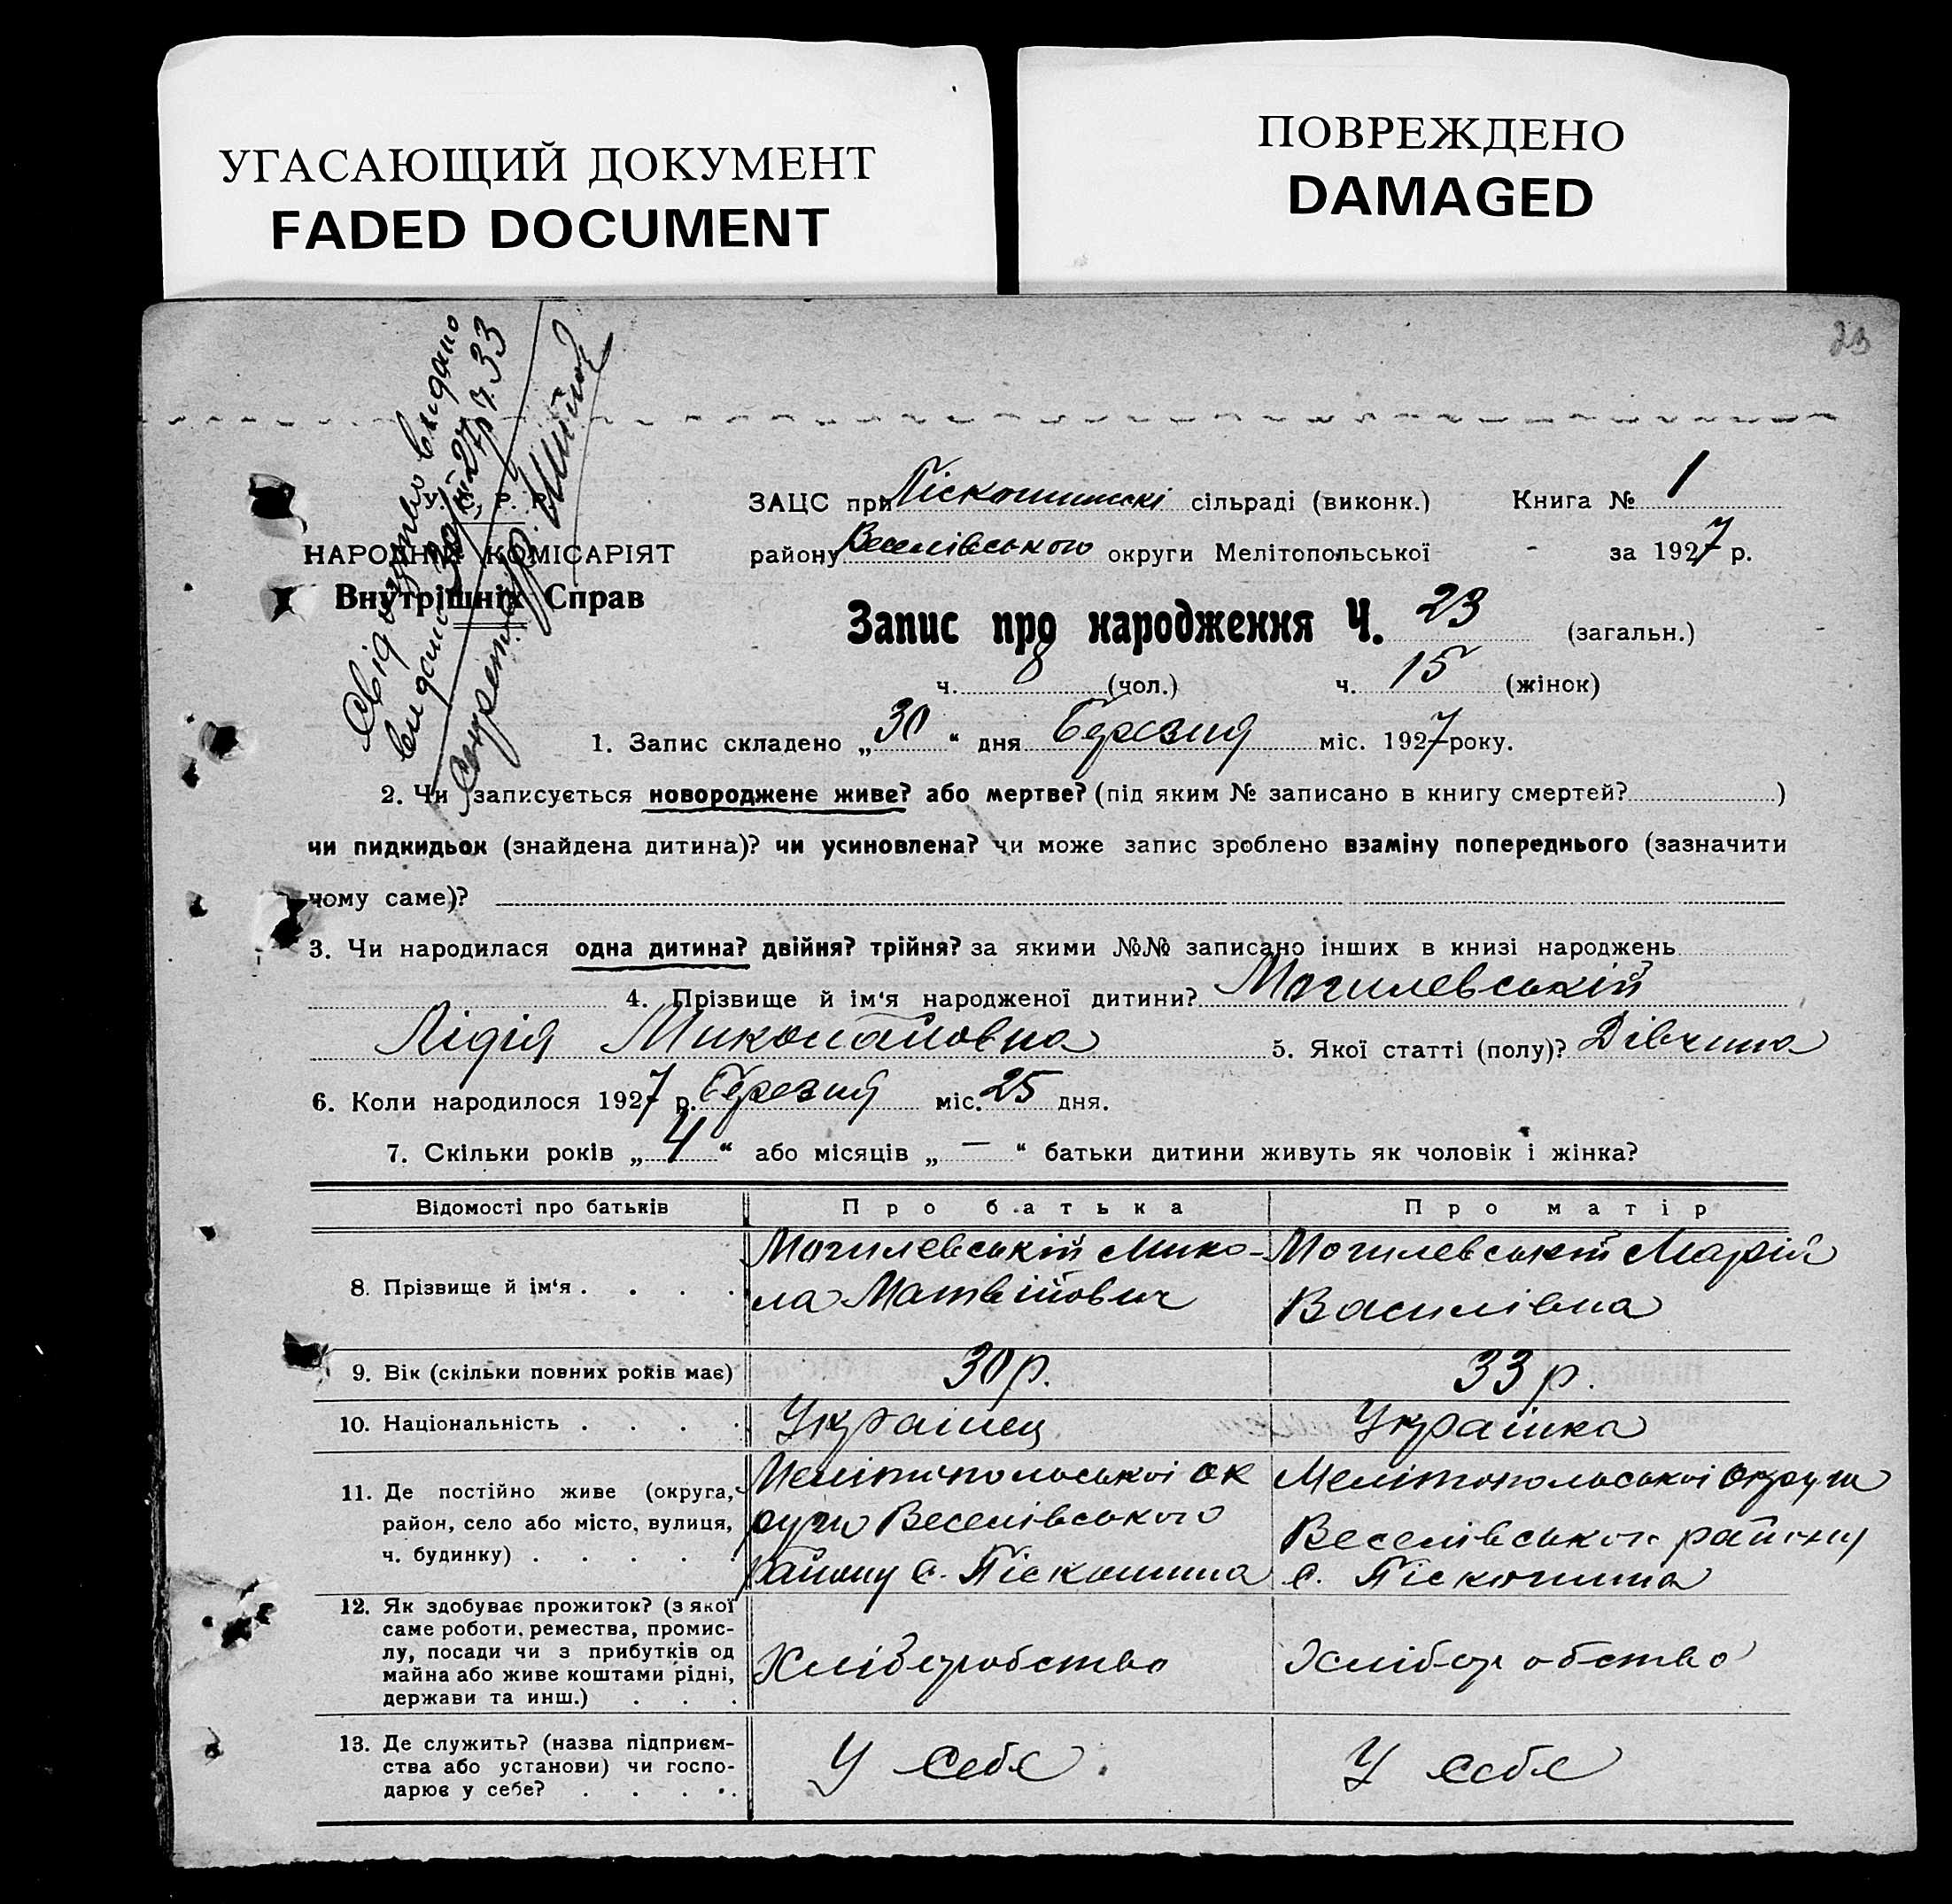 УГАСАЮЩИЙ ДОКУМЕНТ
FADED DOCUMENT
ПОВРЕЖДЕНО
DAMAGED
23
Свідоцтво видано
видано 30/ 27р 7.33
Секретар
У. С. Р. Р.
НАРОДНИЙ КОМІСАРІЯТ
Внутрішніх Справ
ЗАЦС при Піскошинскі сільраді (виконк.) Книга № 1
району Веселівського округи Мелітопольської - за 1927 р.
Запис про народження Ч. 23 (загальн.)
ч. 8 (чол.) ч. 15 (жінок)
1. Запис складено „30“ дня Березня міс. 1927 року.
2. Чи записується новороджене живе? або мертве? (під яким № записано в книгу смертей? )
чи пидкидьок (знайдена дитина)? чи усиновлена? чи може запис зроблено взаміну попереднього (зазначити
чому саме)?
3. Чи народилася одна дитина? двійня? трійня? за якими №№ записано інших в книзі народжень
4. Прізвище й ім‘я народженої дитини? Могилевській
Лідія Миколаіовна 5. Якої статті (полу)? Дівчина
6. Коли народилося 1927 р. Березня міс. 25 дня.
7. Скільки років „4“ або місяців „—“ батьки дитини живуть як чоловік і жінка?
Відомості про батьків Про батька Про матір
8. Прізвище й ім‘я . . . .
Могилевській Мико-
ла Матвійович
Могилевській Марія
Василівна
9. Вік (скільки повних років має) 30 р. 33 р.
10. Національність . . . . Українец Українка
11. Де постійно живе (округа,
район, село або місто, вулиця,
ч. будинку) . . . . .
Мелітопольської ок
руги Веселівського
району с. Піскошина
Мелітопольської округи
Веселівського району
с. Піскошина
12. Як здобуває прожиток? (з якої
саме роботи, ремества, промис-
лу, посади чи з прибутків од
майна або живе коштами рідні,
держави та инш.) . . .
Хліборобство
Хліборобство
13. Де служить? (назва підприєм-
ства або установи) чи госпо-
дарює у себе? . . . .
У себе.
У себе